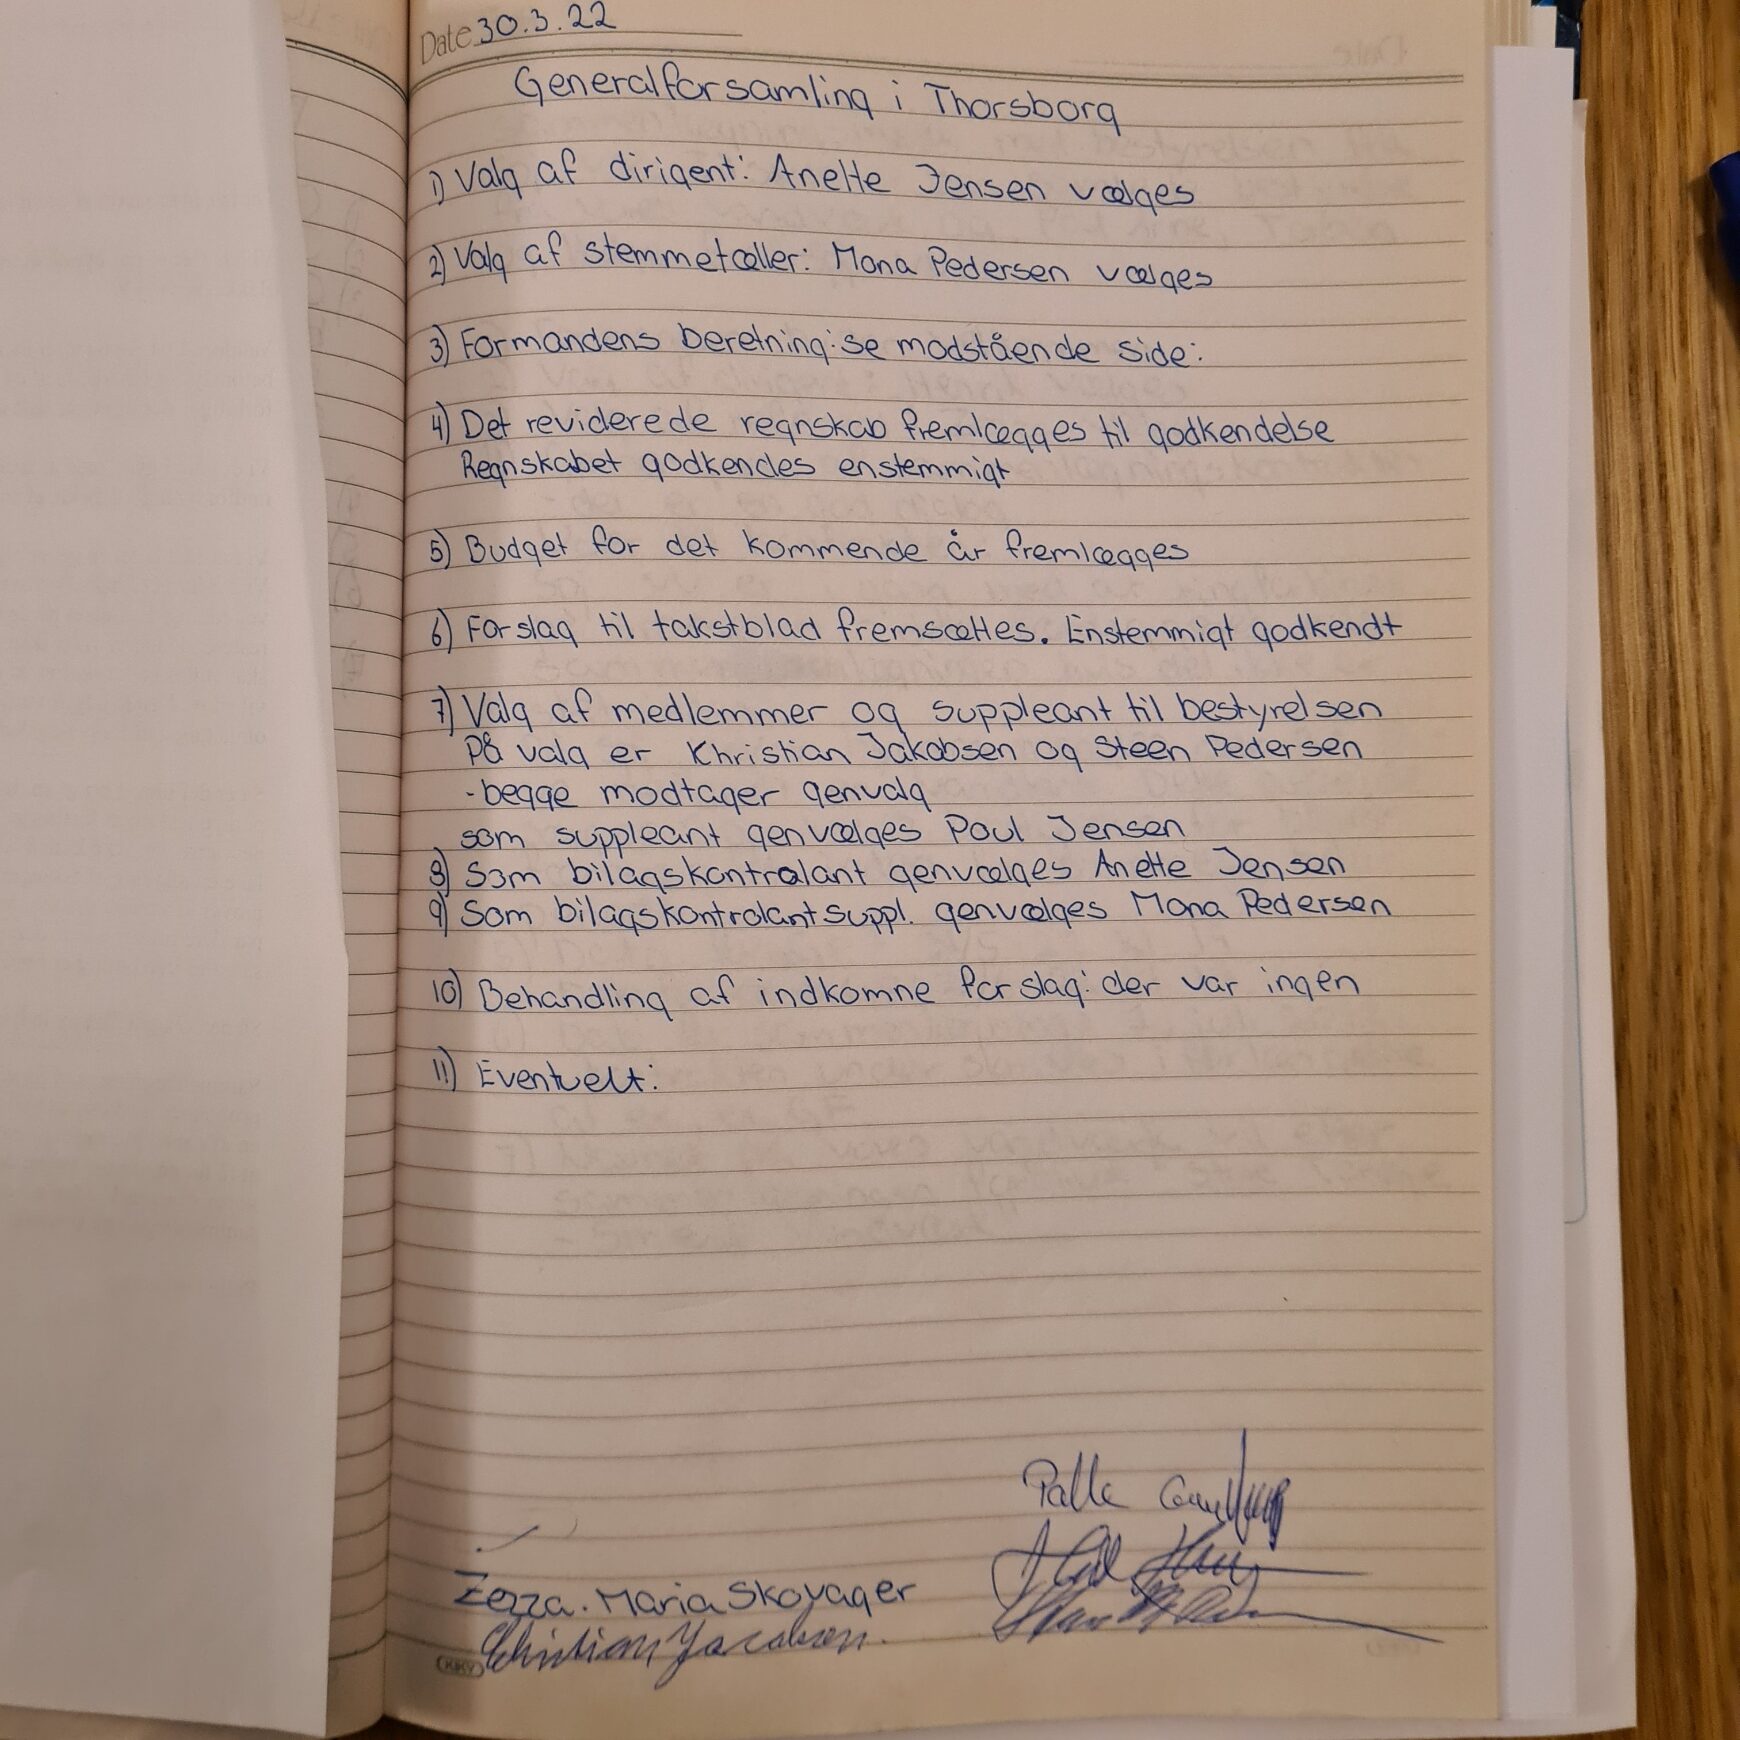 Date 30.3.22
Generalforsamling i Thorsborg
1) Valg af dirigent: Anette Jensen vælges
2) Valg af stemmetæller: Mona Pedersen vælges
3) Formandens beretning: se modstående side:
4) Det reviderede regnskab fremlægges til godkendelse
Regnskabet godkendes enstemmigt
5) Budget for det kommende år fremlægges
6) Forslag til takstblad fremsættes. Enstemmigt godkendt
7) Valg af medlemmer og suppleant til bestyrelsen
På valg er Khristian Jakobsen og Steen Pedersen
- begge modtager genvalg
som suppleant genvælges Poul Jensen
8) Som bilagskontrolant genvælges Anette Jensen
9) Som bilagskontrolantsuppl. genvælges Mona Pedersen
10) Behandling af indkomne forslag: der var ingen
11) Eventuelt:
Palle
Zezza. Maria Skovager
Christian Jacobsen.